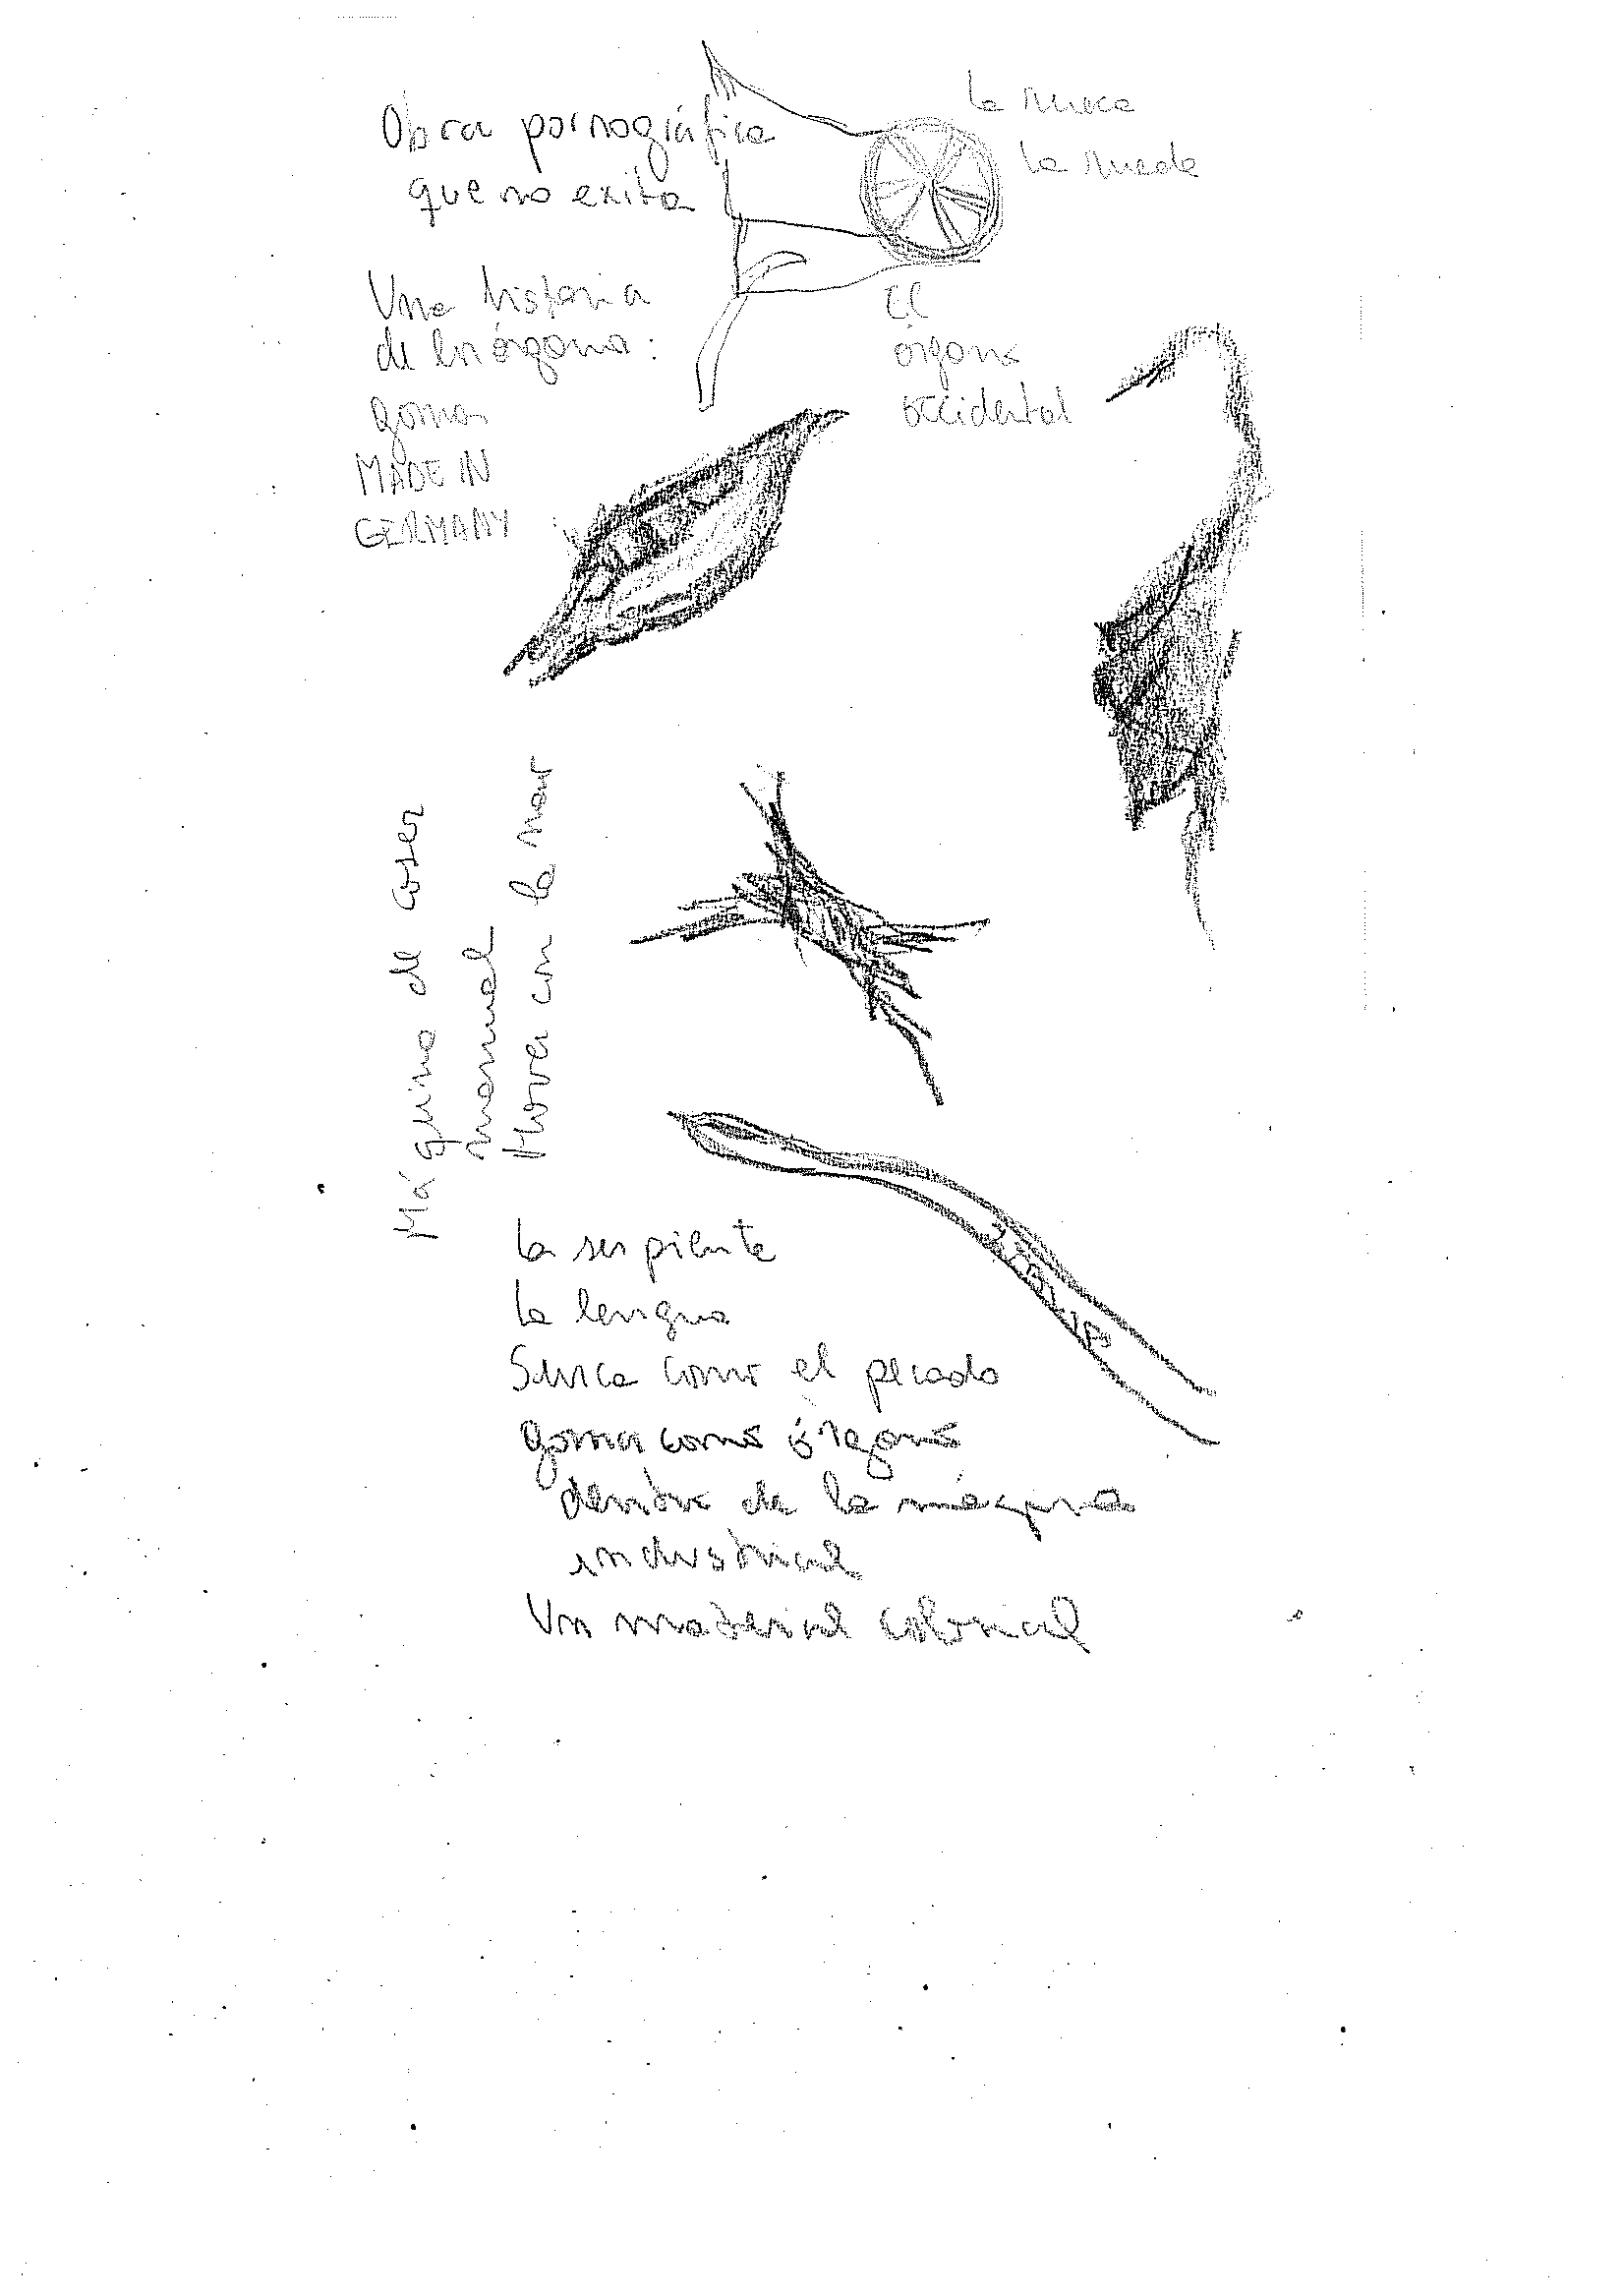 Obra pornográfica
que no exita
la nuca
la rueda
Una historia
de los órganos:
gomas
MADE IN
GERMANY
El
órgano
occidental
Máquina de coser
manual
Mover con la
la serpiente
la lengua
Surca como el pecado
goma como órgano
dentro de la máquina
industrial
Un material colonial